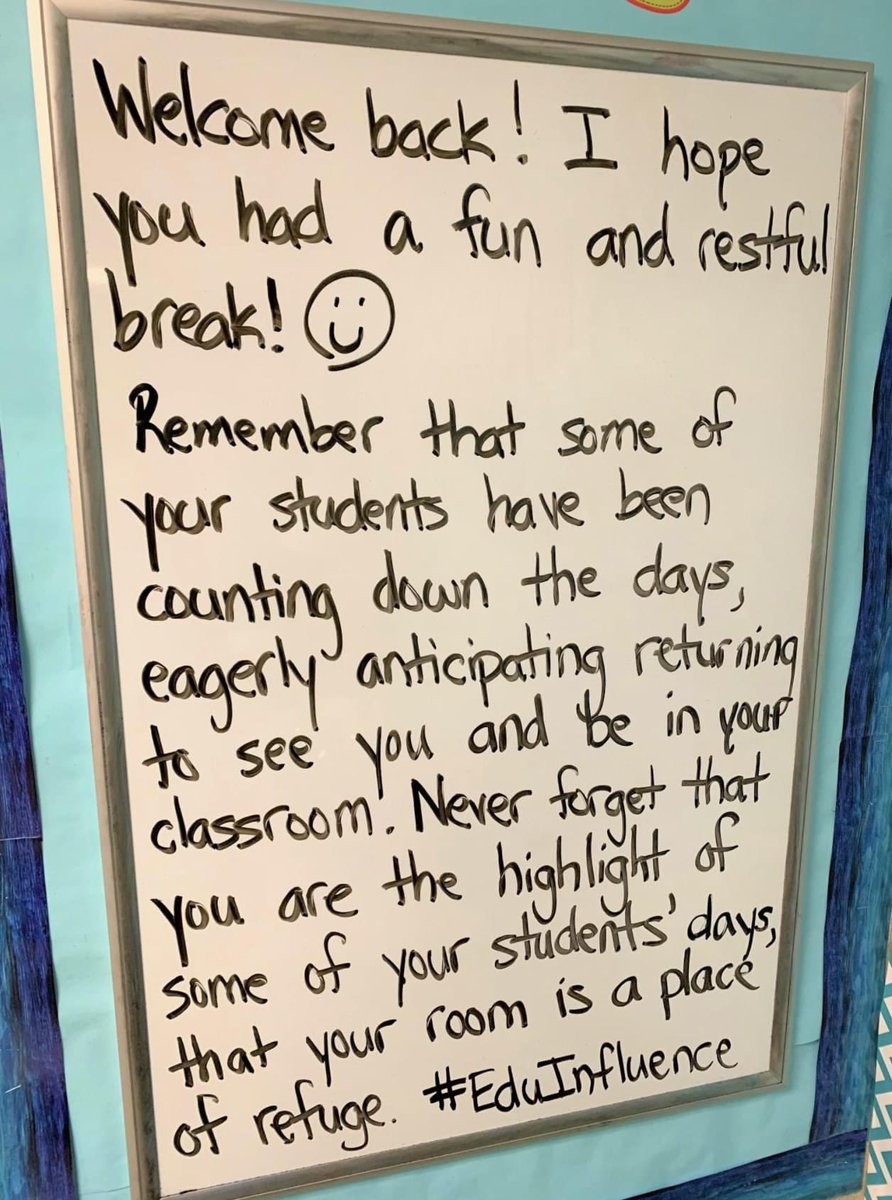 Welcome back! I hope
you had a fun and restful
break!
Remember that some of
your students have been
counting down the days,
eagerly anticipating returning
to see you and be in your
classroom. Never forget that
you are the highlight of
some of your students' days,
that your room is a place
of refuge. #EduInfluence